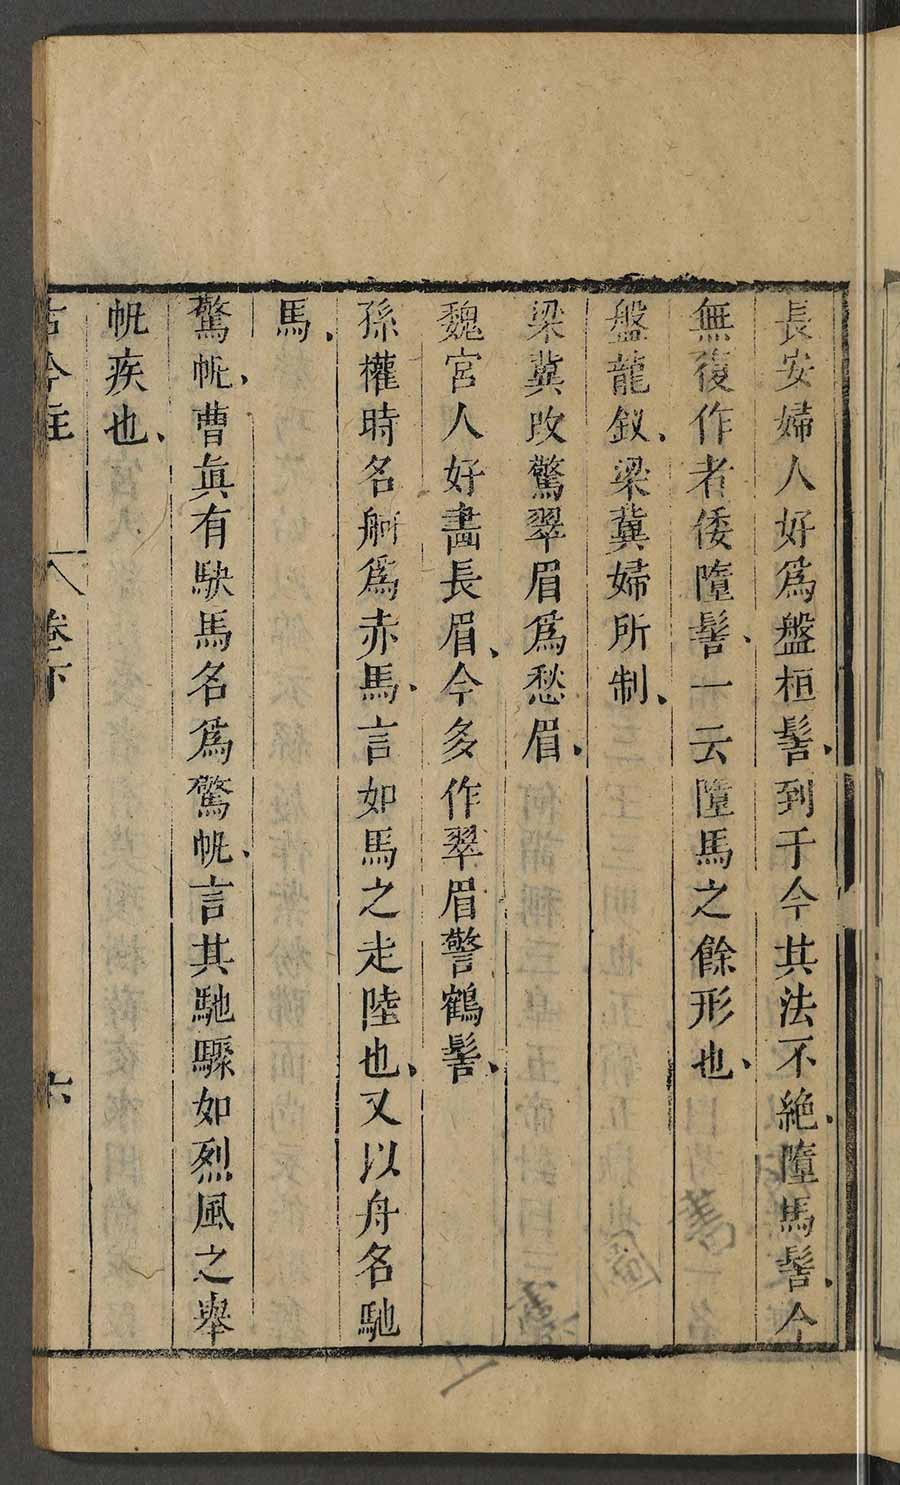 長安婦人好爲盤桓髻、到于今其法不絶、墮馬髻、今
無復作者倭墮髻、一云墮馬之餘形也、
盤龍釵、梁冀婦所制、
梁冀改驚翠眉爲愁眉、
魏宮人好畫長眉、今多作翠眉警鶴髻、
孫權時名舸爲赤馬、言如馬之走陸也、又以舟名馳
馬、
驚帆、曹眞有駃馬名爲驚帆、言其馳驟如烈風之舉
帆疾也、
古今註 卷下 六